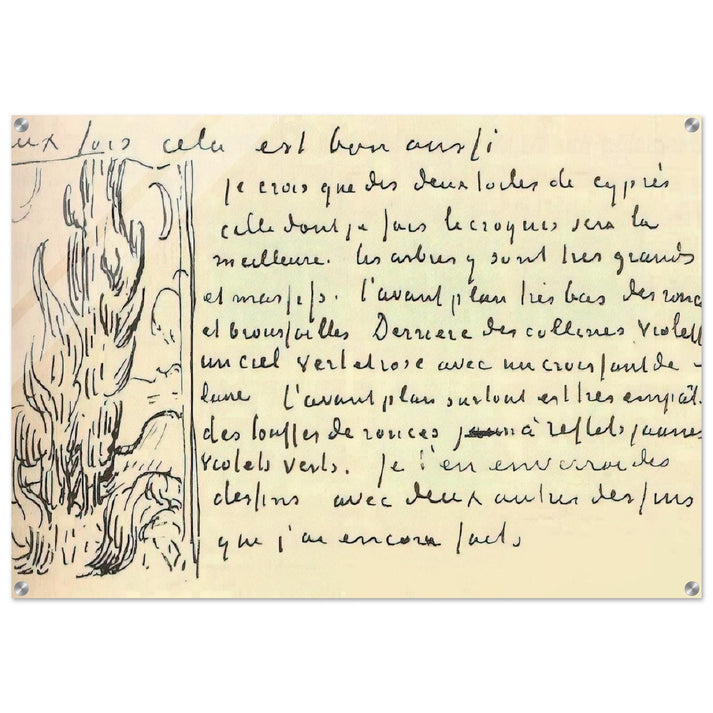 eux fois cela est bon aussi
je crois que des deux toiles de cyprès
celle dont je fais le croquis sera la
meilleure. les arbres y sont très grands
et massifs. l'avant plan très bas des ronc
et broussailles Derrière des collines violett
un ciel vert et rose avec un croissant de
lune L'avant plan surtout est très empât.
des touffes de ronces à reflets jaunes
violets verts. Je t'en enverrai des
dessins avec deux autres dessins
que j'ai encore faits